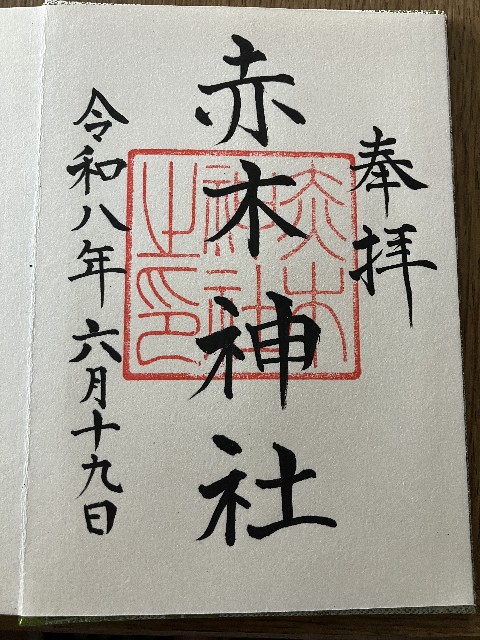 奉拝
赤木神社
赤木神社之印
令和八年六月十九日